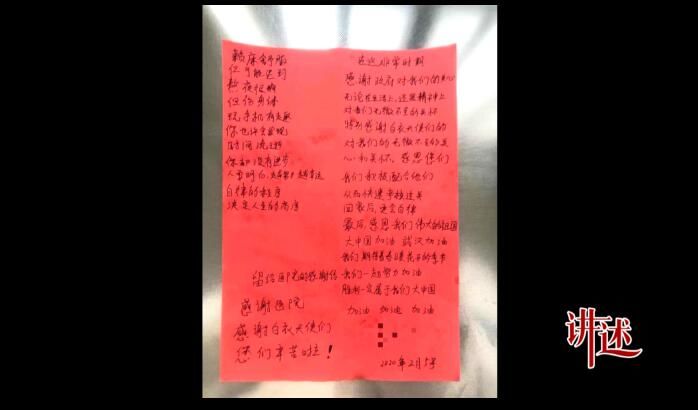 赖床舒服
但可能迟到
熬夜很爽
但伤身体
玩手机有意思
你也许会发现
时间流逝
你却没有进步
人要明白,
自律的程度
决定人生的高度
留给医院的感谢信
感谢医院
感谢白衣天使们
您们辛苦啦!
在这非常时期
感谢政府对我们的关心
无论在生活上,还是精神上
对我们无微不至的关怀
特别感谢白衣天使们的
对我们的无微不至的关
心和关怀、感恩你们
我们积极配合他们
从而快速审核过关
回家后,更会自律
最后,感恩我们伟大的祖国
大中国加油 武汉加油
我们期待着春暖花开的季节
我们一起努力加油
胜利一定属于我们大中国
加油 加油 加油
2020年2月5号
讲述